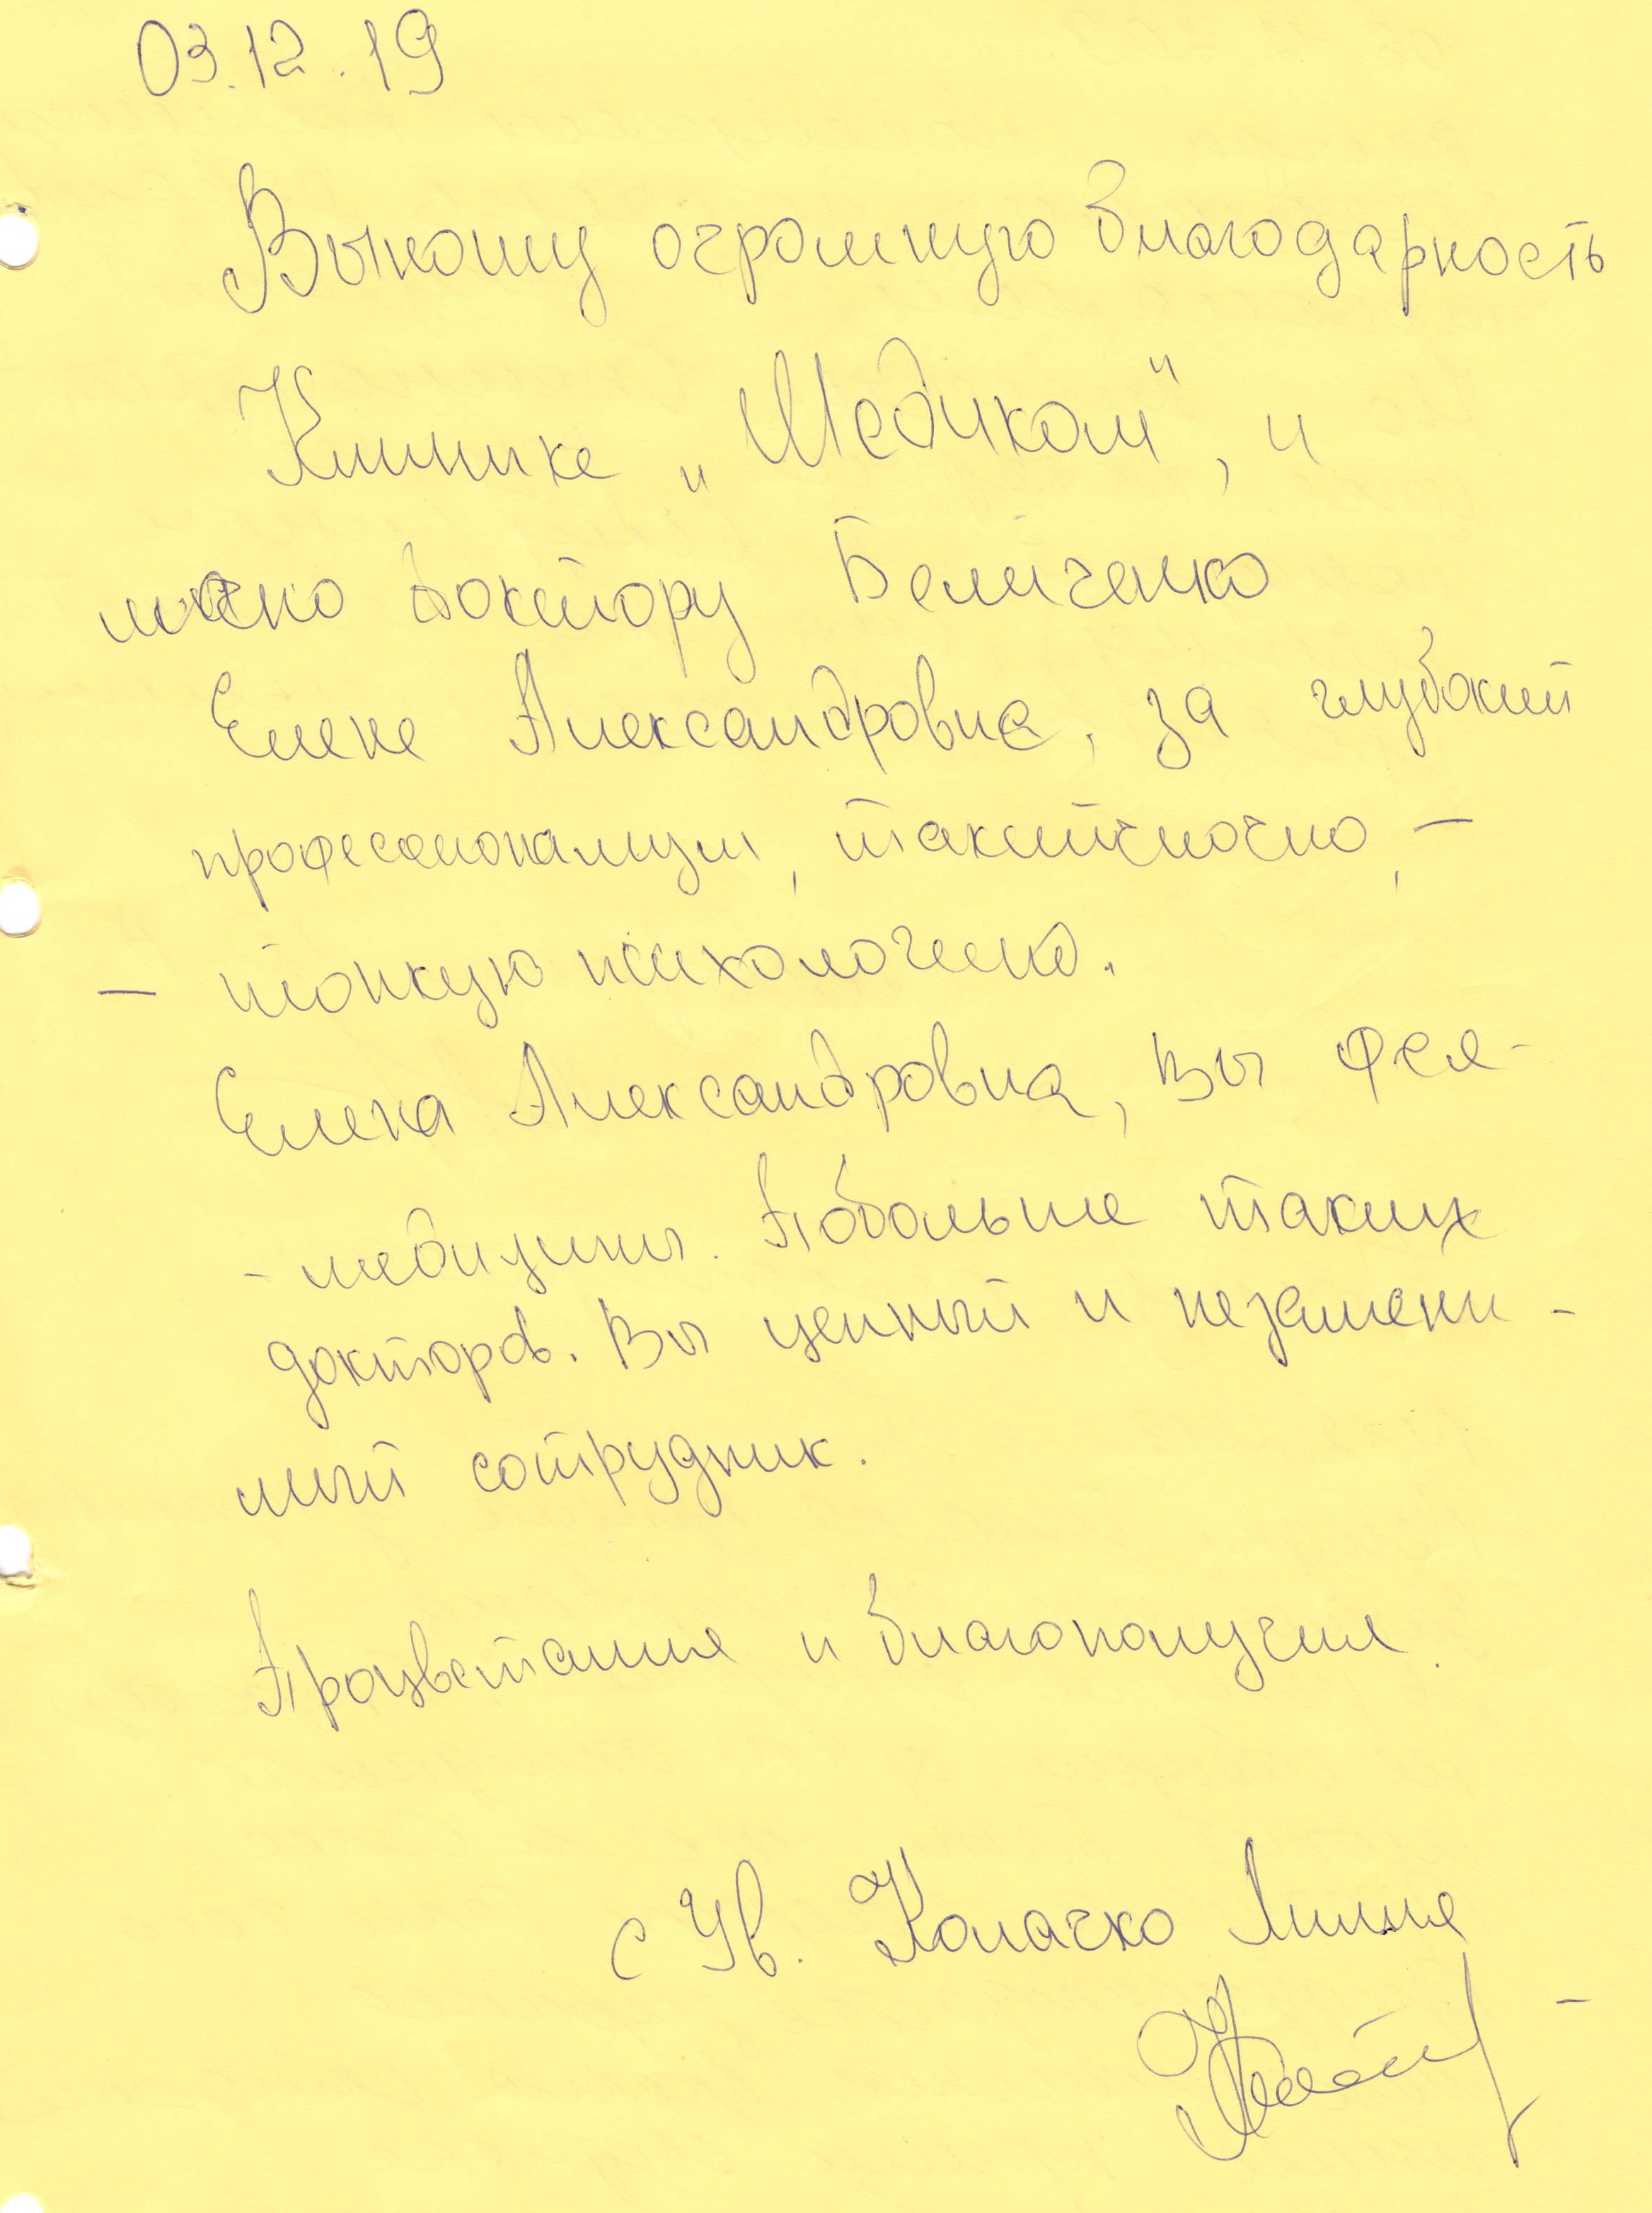 03.12.19
Выношу огромную благодарность
Клинике „Медиком", и
доктору
Елене Александровне, за глубокий
професионализм, тактичность, -
- тонкую психологию.
Елена Александровна, Вы фея-
- медицины. Побольше таких
докторов. Вы ценный и незамени-
мый сотрудник.
Процветания и благополучия.
с Ув. Колачко Лилия